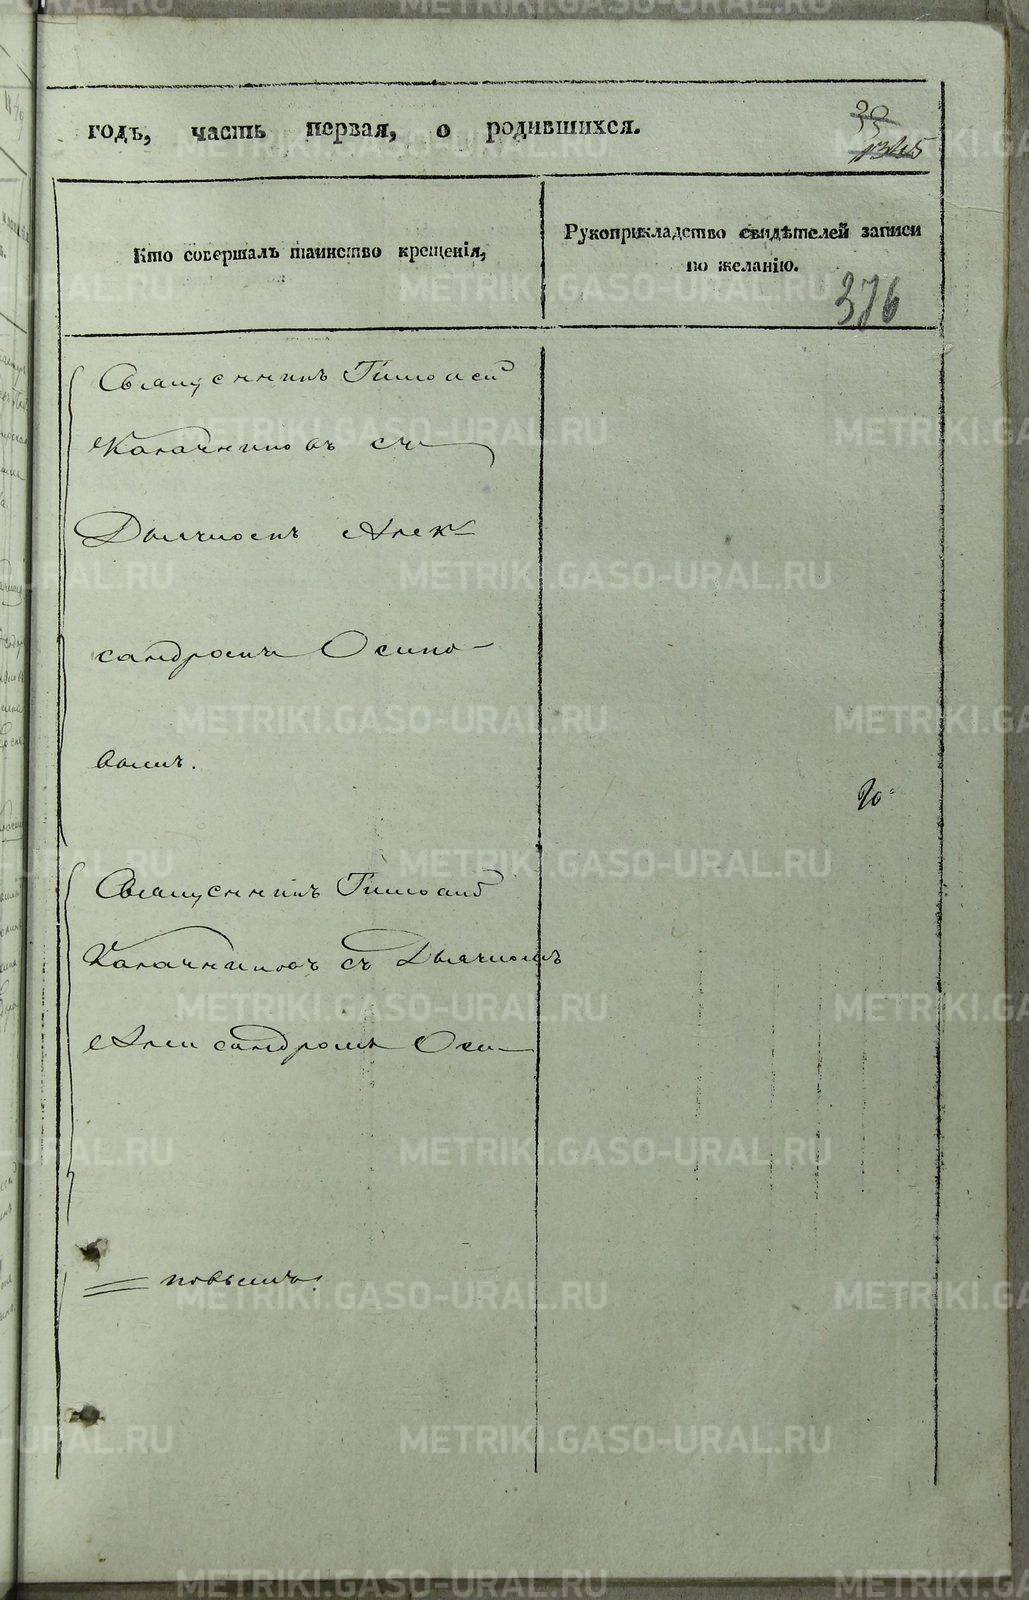 годъ, часть первая, о родившихся.
376
Кто совершалъ таинство крещенія,
Рукоприкладство свидѣтелей записи
по желанію.
Священникъ Тимофей
Калачниковъ съ
Дьячкомъ Алек-
сандромъ Осипо-
вымъ.
Священникъ Тимофей
Калачниковъ съ Дьячкомъ
Александромъ Оси-
= повымъ.
METRIKI.GASO-URAL.RU